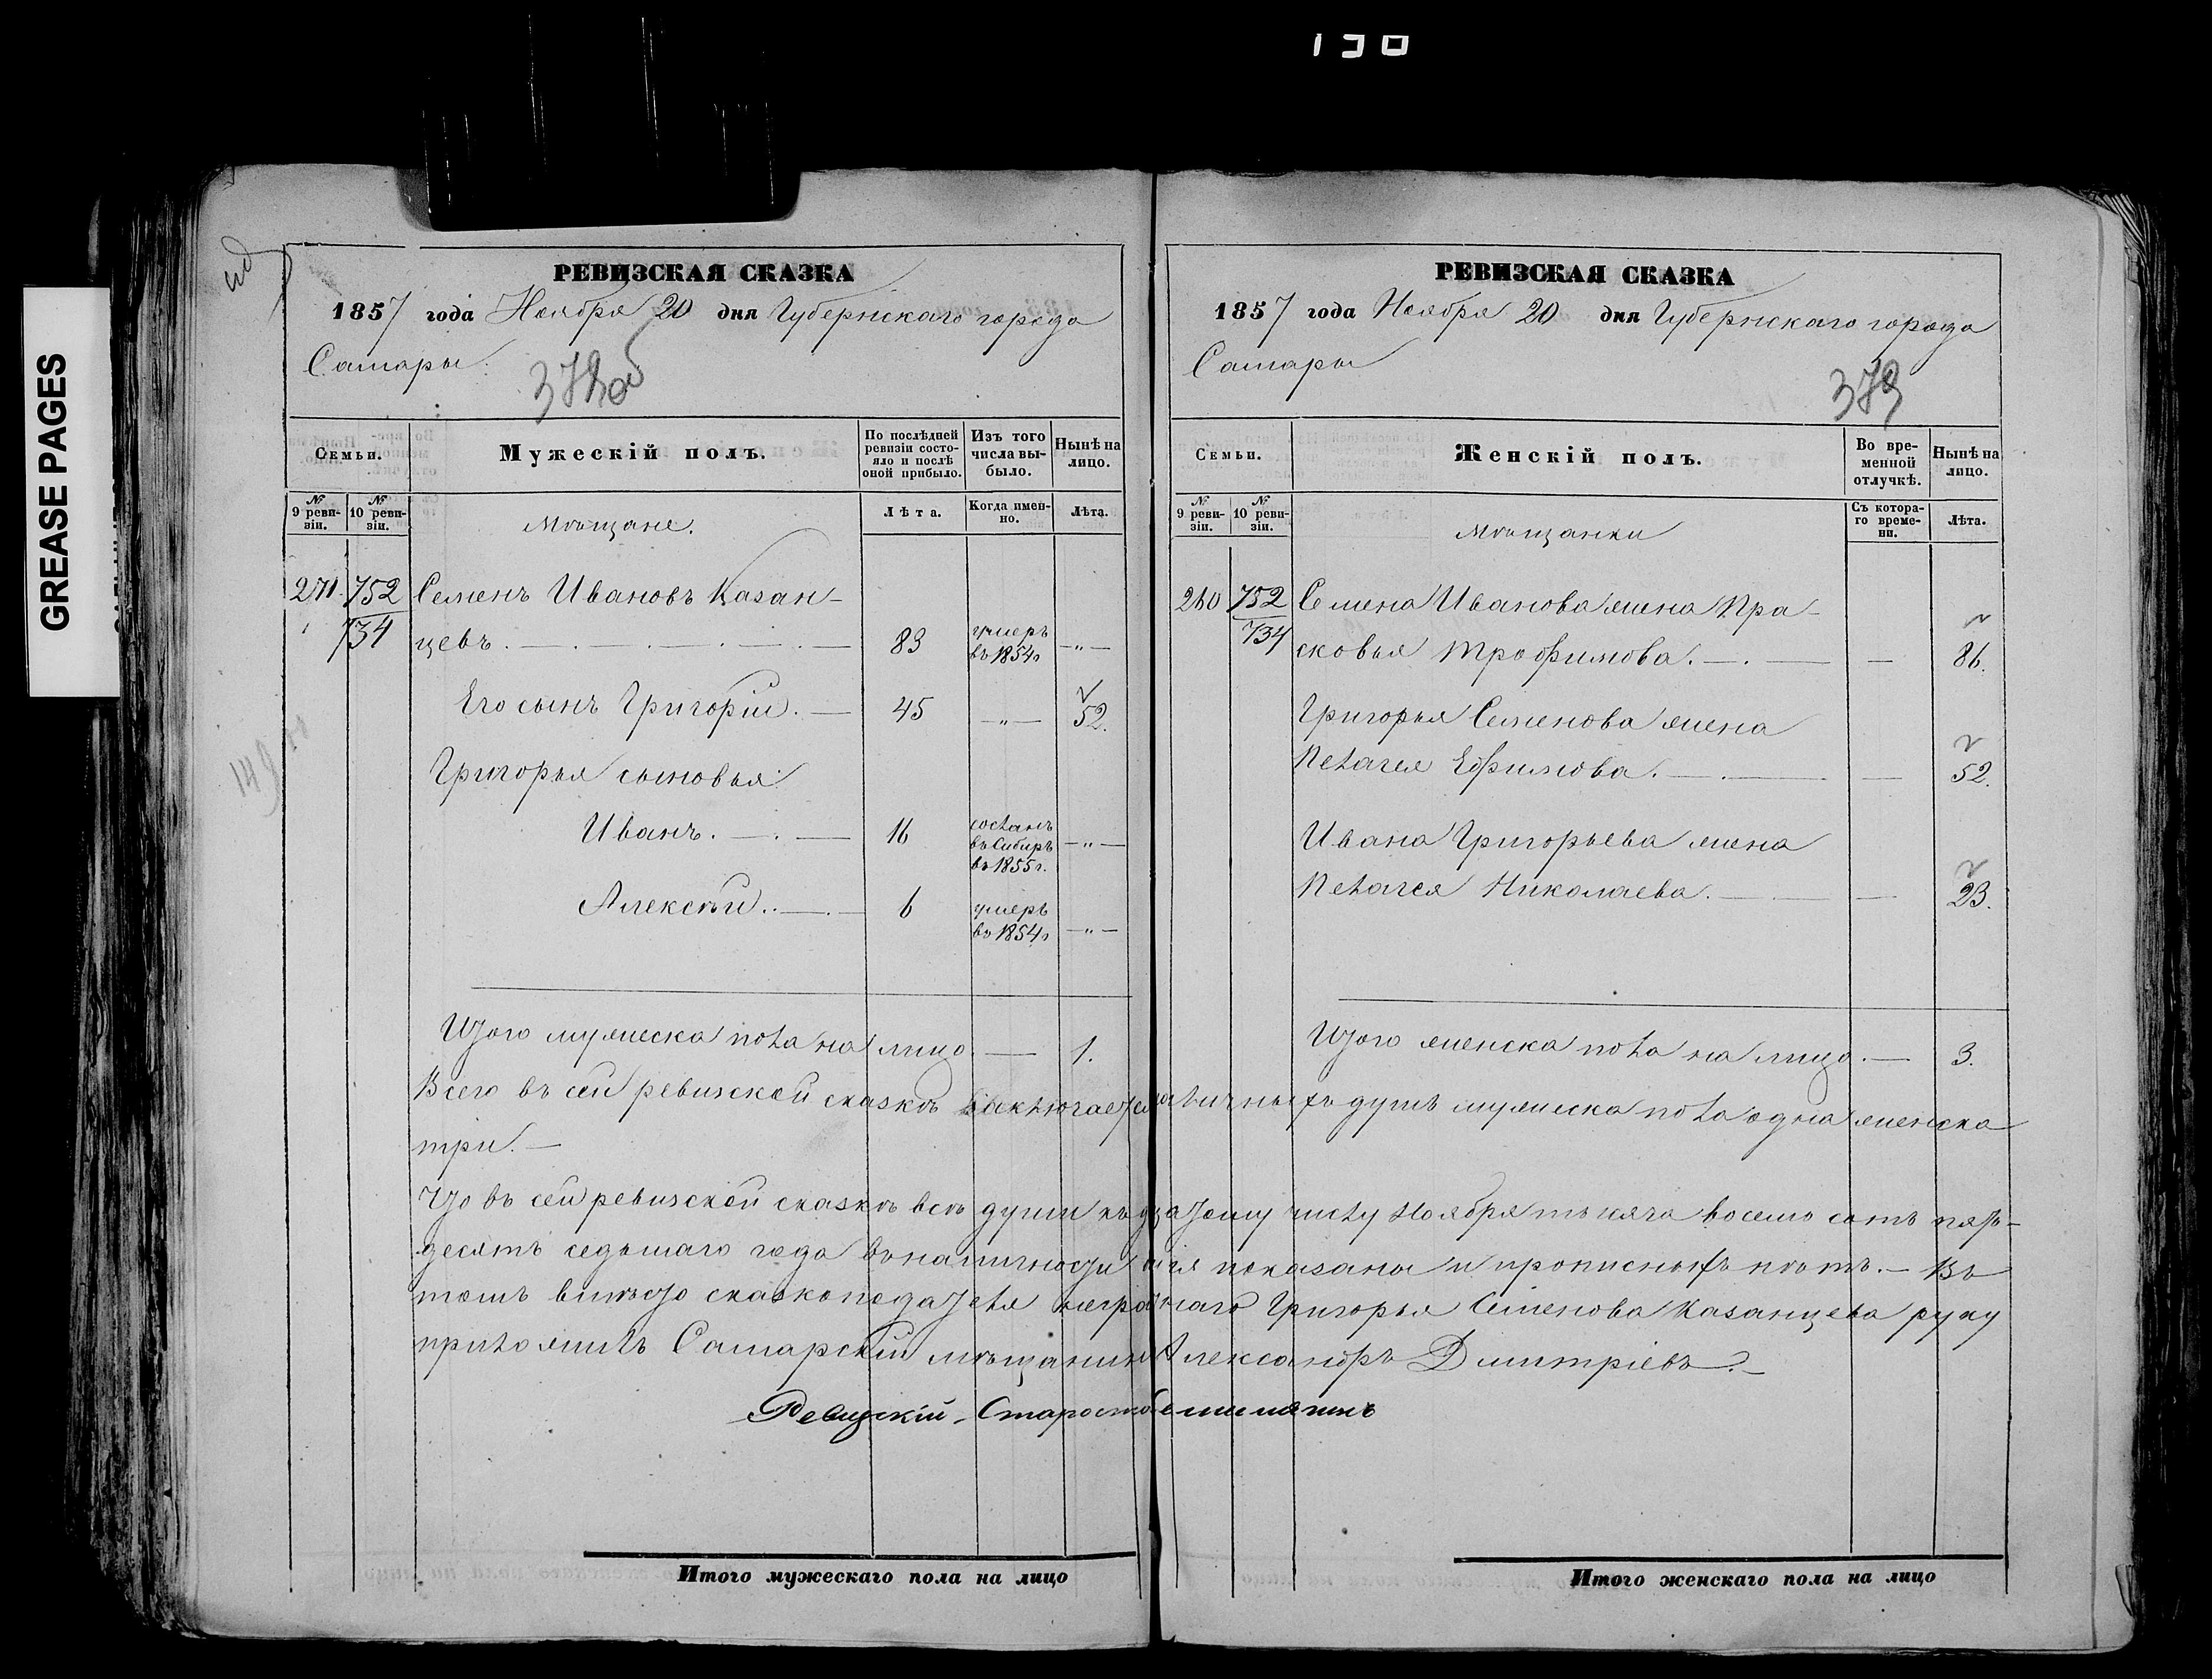 130
GREASE PAGES
РЕВИЗСКАЯ СКАЗКА
1857 года Ноября 20 дня Губернскаго города
Самары.
378об
Семьи.
Мужескій полъ.
По послѣдней ревизіи состо-
яло и послѣ
оной прибыло.
Изъ того
числа вы-
было.
Нынѣ на
лицо.
№ 9 реви-
зіи.
№ 10 реви-
зіи.
Мѣщане.
Лѣта.
Когда имен-
но.
Лѣта.
271. 752 Семенъ Ивановъ Казан-
734 цевъ. 83 умеръ въ 1854г —„—
Его сынъ Григорій. — 45 —„— 52.
Григорья сыновья
Иванъ. — 16 сосланъ въ Сибирь въ 1855г. —„—
Алексѣй. — 6 умеръ въ 1854г —„—
Итого мужеска пола на лицо. — 1.
РЕВИЗСКАЯ СКАЗКА
1857 года Ноября 20 дня Губернскаго города
Самары
379
Семьи.
Женскій полъ.
Во вре-
менной
отлучкѣ.
Нынѣ на
лицо.
№ 9 реви-
зіи.
№ 10 реви-
зіи.
Мѣщанки
Съ котора-
го време-
ни.
Лѣта.
260 752 Семена Иванова жена Пра-
734 сковья Трофимова. — — 86.
Григорья Семенова жена
Пелагея Ефимова. — — 52.
Ивана Григорьева жена
Пелагея Николаева. — — 23.
Итого женска пола на лицо. — 3.
Всего въ сей ревизской сказкѣ заключается наличныхъ душъ мужеска пола одна женска
три. —
Что въ сей ревизской сказкѣ всѣ души къ дватому числу Ноября тысяча восемь сотъ пять-
десятъ седьмаго года въ наличности сія показаны и прописныхъ нѣтъ. — Въ
томъ вмѣсто сказкоподателя неграмотнаго Григорья Семенова Казанцева руку
приложилъ Самарскій мѣщанинъ Александръ Дмитріевъ. —
Ревизскій Староста
Итого мужескаго пола на лицо
Итого женскаго пола на лицо